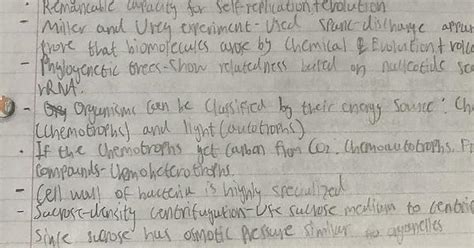 · Remarkable capacity for self-replication & evolution
- Miller and Urey experiment - Used spark-discharge appar
prove that biomolecules arose by Chemical & Evolution + role
- Phylogenetic trees - show relatedness based on nucleotide seq
rRNA.
- Organisms can be classified by their energy source: Che
(Chemotrophs) and light (autotrophs)
· If the chemotrophs get carbon from CO2. Chemoautotrophs. Fr
compounds - Chemoheterotrophs.
- Cell wall of bacteria is highly specialized
- Sucrose-density centrifugation - Use sucrose medium to centrif
Since sucrose has osmotic pressure similar to organelles